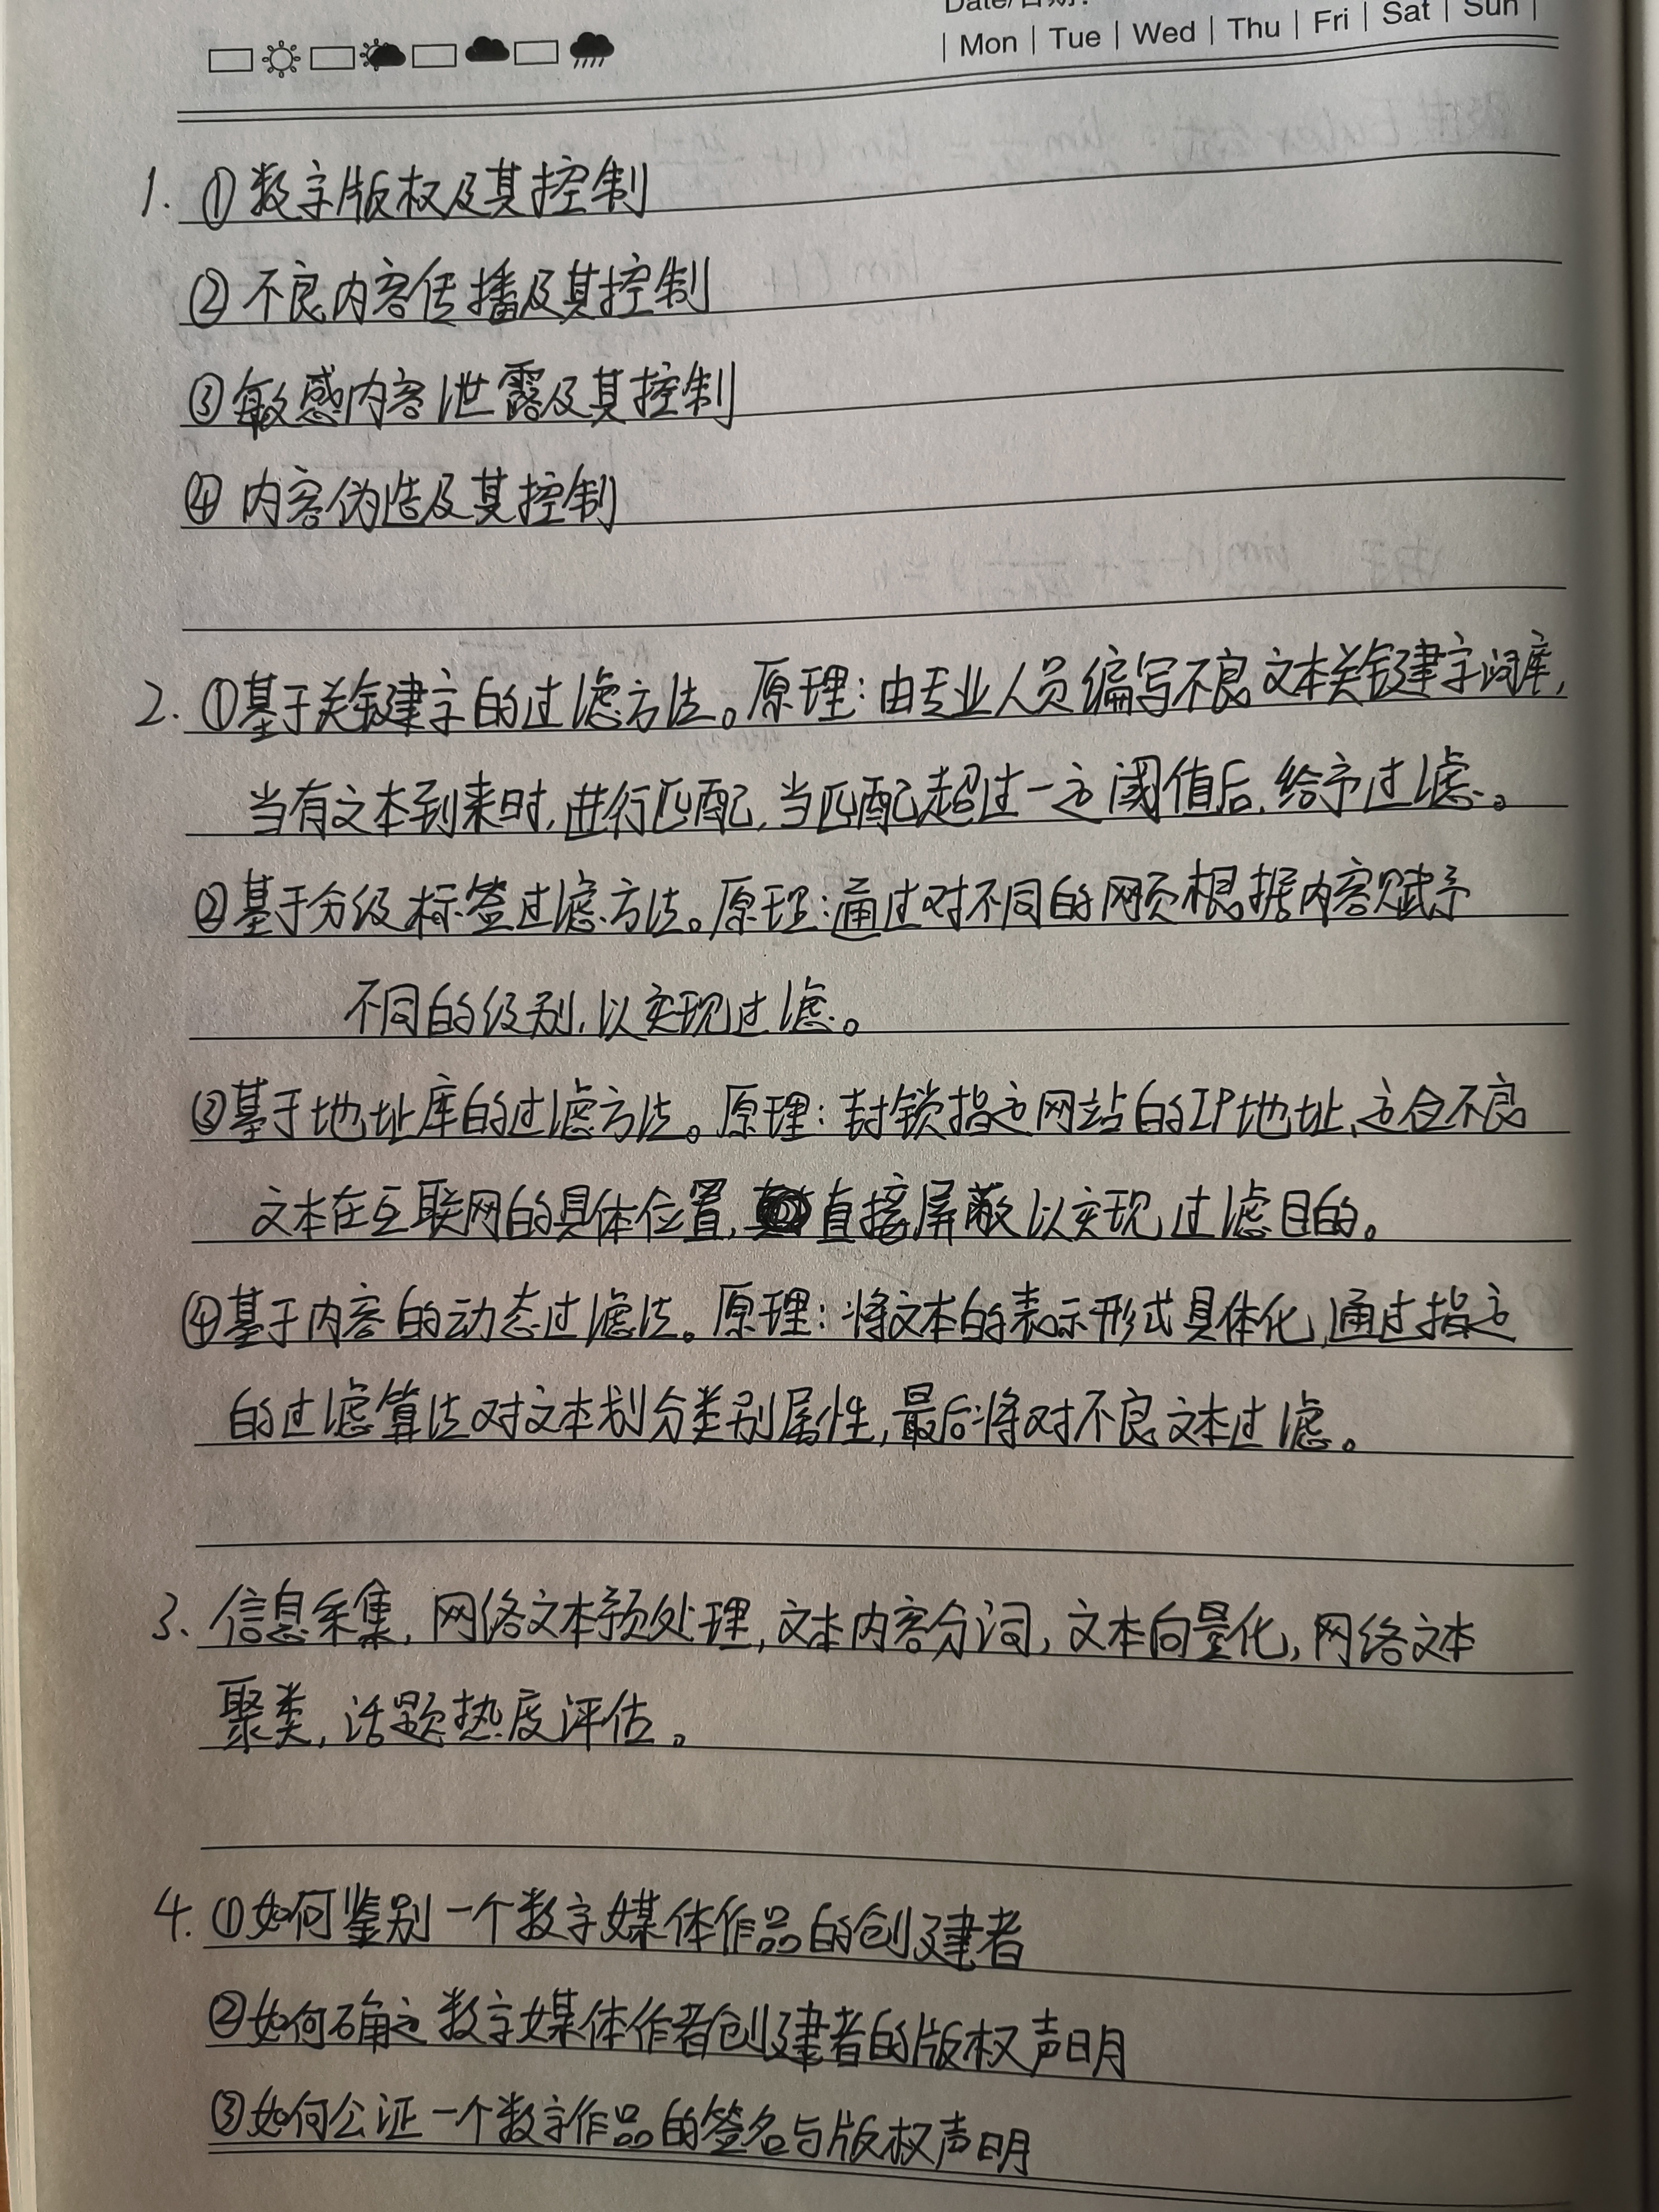 Date/日期:
| Mon | Tue | Wed | Thu | Fri | Sat | Sun |
1. ①数字版权及其控制
②不良内容传播及其控制
③敏感内容泄露及其控制
④内容伪造及其控制
2. ①基于关键字的过滤方法。原理:由专业人员编写不良文本关键字词库,
当有文本到来时,进行匹配,当匹配超过一定阈值后,给予过滤。
②基于分级标签过滤方法。原理:通过对不同的网页根据内容赋予
不同的级别,以实现过滤。
③基于地址库的过滤方法。原理:封锁指定网站的IP地址,定位不良
文本在互联网的具体位置,直接屏蔽以实现过滤目的。
④基于内容的动态过滤法。原理:将文本的表示形式具体化,通过指定
的过滤算法对文本划分类别属性,最后将对不良文本过滤。
3. 信息采集,网络文本预处理,文本内容分词,文本向量化,网络文本
聚类,话题热度评估。
4. ①如何鉴别一个数字媒体作品的创建者
②如何确定数字媒体作者创建者的版权声明
③如何公证一个数字作品的签名与版权声明